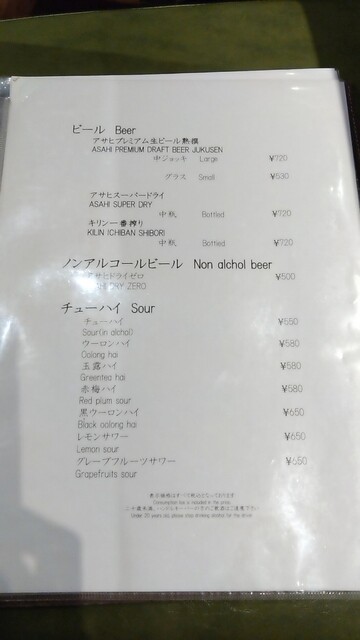 ビール Beer
アサヒプレミアム生ビール熟撰
ASAHI PREMIUM DRAFT BEER JUKUSEN
中ジョッキ Large ¥720
グラス Small ¥530
アサヒスーパードライ
ASAHI SUPER DRY
中瓶 Bottled ¥720
キリン一番搾り
KILIN ICHIBAN SHIBORI
中瓶 Bottled ¥720
ノンアルコールビール Non alchol beer
アサヒドライゼロ ¥500
DRY ZERO
チューハイ Sour
チューハイ ¥550
Sour(in alchol)
ウーロンハイ ¥580
Oolong hai
玉露ハイ ¥580
Greentea hai
赤梅ハイ ¥580
Red plum sour
黒ウーロンハイ ¥650
Black oolong hai
レモンサワー ¥650
Lemon sour
グレープフルーツサワー ¥650
Grapefruits sour
表示価格はすべて税込となっております
Consumption tax is included in the price.
Under 20 years old, please stop drinking alcohol